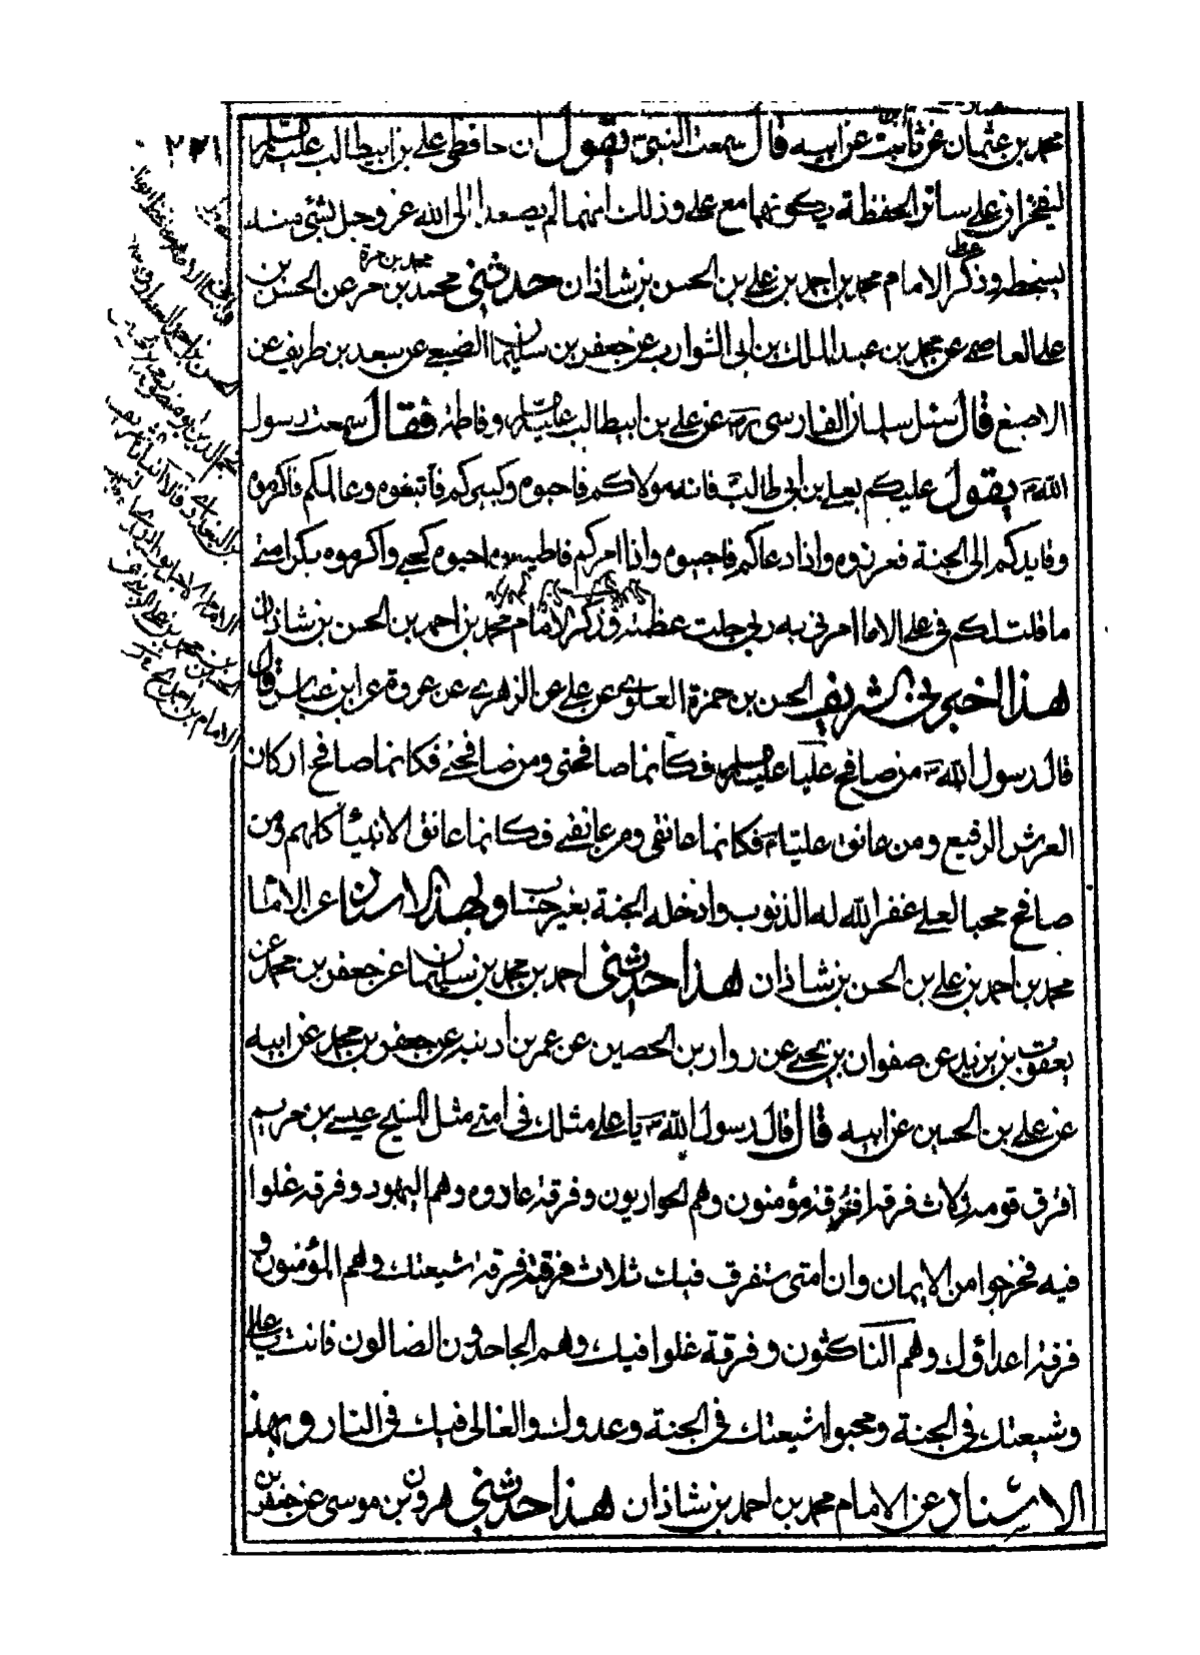 محمد بن عثمان عن ثابت عن ابيه قال سمعت النبي ص يقول ان حافظى على بن ابيطالب عليه السلم
ليفخران على سائر الحفظة بكونهما مع على وذلك انهما لم يصعدا الى الله عز وجل بشئ منه
يسخطه وذكر الامام محمد بن احمد بن على بن الحسن بن شاذان حدثنى محمد بن حمزة عن الحسن بن
على العاصمى عن محمد بن عبد الملك بن ابى الشوارب عن جعفر بن سليمان الضبعى عن سعد بن طريف عن
الاصبغ قال سئل سلمان الفارسى عن على بن ابيطالب عليه السلم وفاطمة فقال سمعت رسول
الله ص يقول عليكم بعلى بن ابى طالب فانه مولاكم فاحبوه وكبيركم فاتبعوه وعالمكم فاكرموه
وقايدكم الى الجنة فعززوه واذا دعاكم فاجيبوه واذا امركم فاطيعوه احبوه كحبى واكرموه بكرامتى
ما قلت لكم فى على الا ما امرنى به ربى جلت عظمته وذكر الامام محمد بن احمد بن الحسن بن شاذان
هذا اخبرنى الشريف الحسن بن حمزة العلوى عن على عن الزهرى عن عروة عن ابن عباس قال
قال رسول الله ص من صافح عليا عليه السلم فكانما صافحنى ومن صافحنى فكانما صافح اركان
العرش الرفيع ومن عانق عليا فكانما عانقنى ومن عانقنى فكانما عانق الانبياء كلهم ومن
صافح محبا لعلى غفر الله له الذنوب وادخله الجنة بغير حساب وبهذا الاسناد عن الامام
محمد بن احمد بن على بن الحسن بن شاذان هذا حدثنى احمد بن محمد بن سليمان عن جعفر بن محمد عن
يعقوب بن يزيد عن صفوان بن يحيى عن روار بن الحصين عن عمر بن اذينه عن جعفر بن محمد عن ابيه
عن على بن الحسين عن ابيه قال قال رسول الله ص يا على مثلك فى امتى مثل المسيح عيسى بن مريم
افترق قومه ثلاث فرق فرقة مؤمنون وهم الحواريون وفرقة عادوه وهم اليهود وفرقة غلوا
فيه فخرجوا من الايمان وان امتى ستفرق فيك ثلاث فرق فرقة شيعتك وهم المؤمنون و
فرقة اعداؤك وهم الناكثون وفرقة غلوا فيك وهم الجاحدون الضالون فانت يا على
وشيعتك فى الجنة ومحبوا شيعتك فى الجنة وعدوك والغالى فيك فى النار وبهذا
الاسناد عن الامام محمد بن احمد بن شاذان هذا حدثنى هرون بن موسى عن جعفر بن